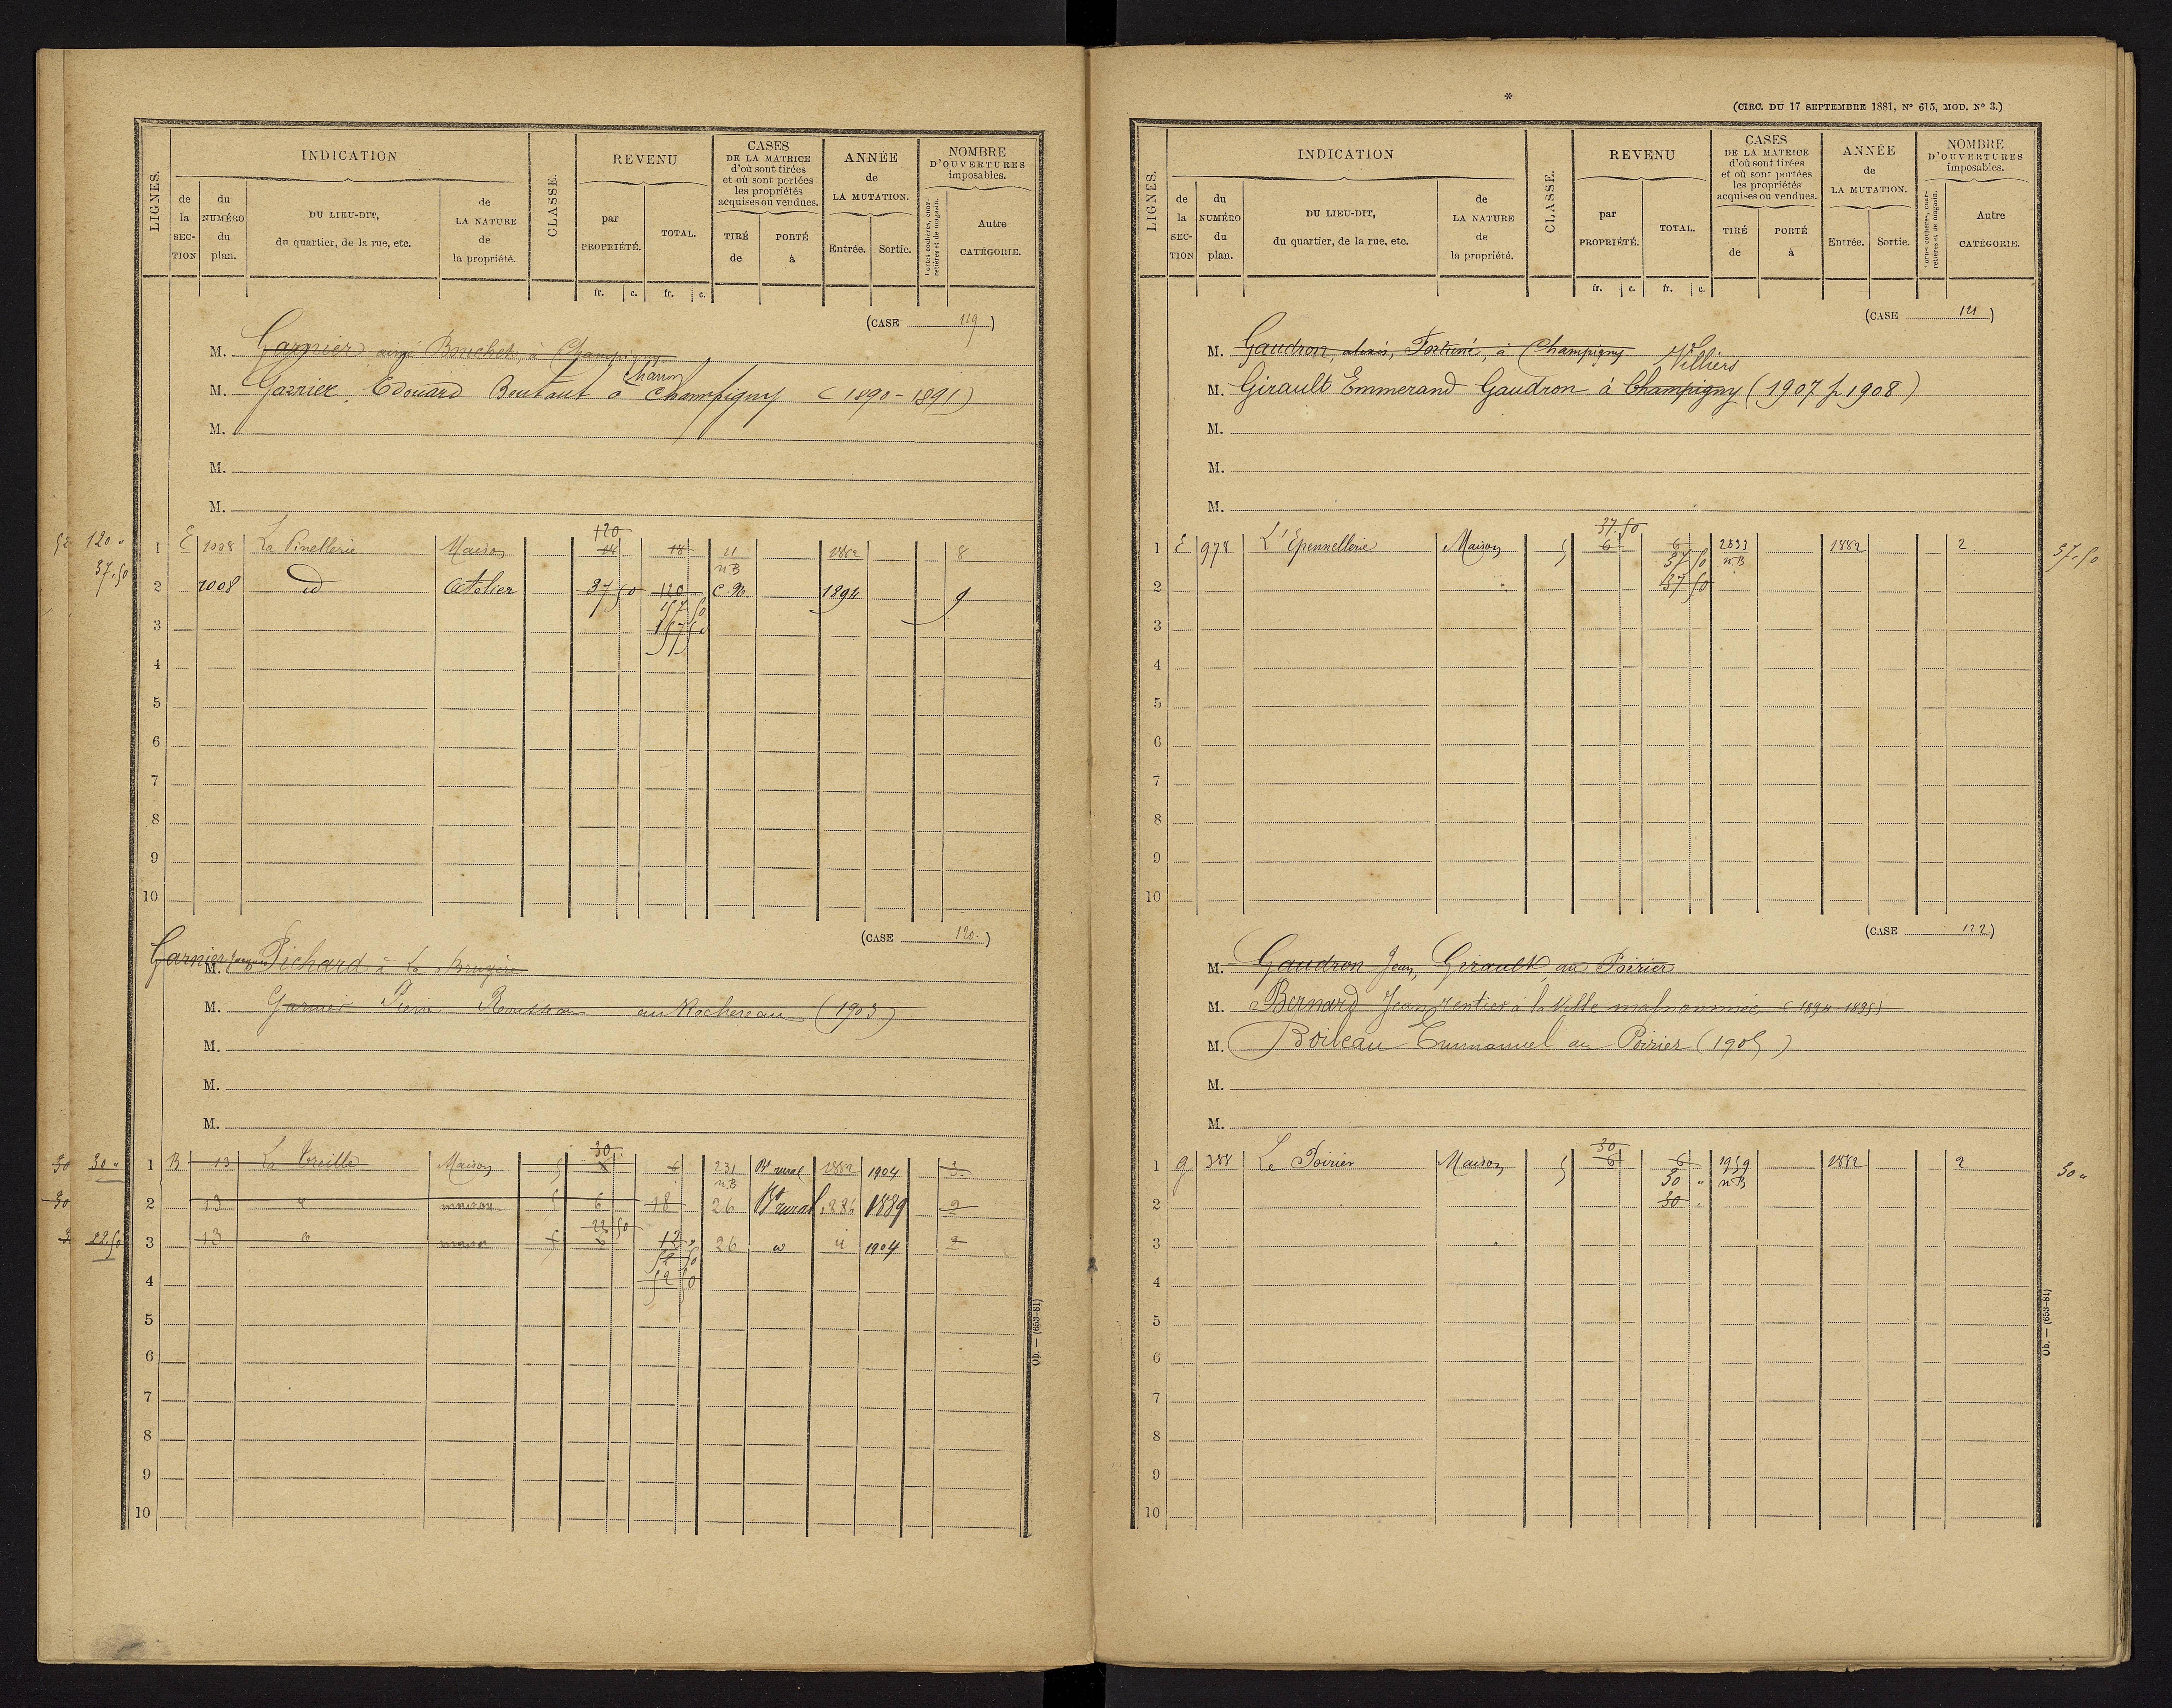 LIGNES.
INDICATION
de la SECTION
du NUMÉRO du plan.
DU LIEU-DIT, du quartier, de la rue, etc.
de LA NATURE de la propriété.
CLASSE.
REVENU
par PROPRIÉTÉ.
TOTAL.
CASES DE LA MATRICE d'où sont tirées et où sont portées les propriétés acquises ou vendues.
TIRÉ de
PORTÉ à
ANNÉE de LA MUTATION.
Entrée.
Sortie.
NOMBRE D'OUVERTURES imposables.
Portes cochères, charretières et de magasin.
Autre CATÉGORIE.
fr. c. fr. c.
(CASE 119)
M. Garnier Bouchet à Champigny
Charron
M. Garnier Edouard Boutaut à Champigny (1890-1891)
M.
M.
M.
120
120 " 1 E 1008 La Pinellerie Maison 18 18 11 1882 8
nB
37.50 2 1008 id Atelier 37 50 120 C.N. 1894 9
157 50
3 157 50
4
5
6
7
8
9
10
(CASE 120.)
M. Garnier Jacques Pichard à La Bruyère
M. Garnier Pierre Rousseau au Rochereau (1903)
M.
M.
M.
30
30 30 " 1 B 13 La Treille Maison 5 6 231 Bt rural 1882 1904 3
nB
30 2 13 maison 5 6 18 26 Bt rural 1886 1889 2
22 50
22.50 3 13 maison 5 6 12 26 1904 2
52 50
4 52 50
5
6
7
8
9
10
Ob. — (653-81)
*
(CIRC. DU 17 SEPTEMBRE 1881, N° 615, MOD. N° 3.)
LIGNES.
INDICATION
de la SECTION
du NUMÉRO du plan.
DU LIEU-DIT, du quartier, de la rue, etc.
de LA NATURE de la propriété.
CLASSE.
REVENU
par PROPRIÉTÉ.
TOTAL.
CASES DE LA MATRICE d'où sont tirées et où sont portées les propriétés acquises ou vendues.
TIRÉ de
PORTÉ à
ANNÉE de LA MUTATION.
Entrée.
Sortie.
NOMBRE D'OUVERTURES imposables.
Portes cochères, charretières et de magasin.
Autre CATÉGORIE.
fr. c. fr. c.
(CASE 121)
M. Gaudron, alexis, Fortuné, à Champigny
Villiers
M. Girault Emmerand Gaudron à Champigny (1907 p 1908)
M.
M.
M.
37.50
1 E 978 L'Epennellerie Maison 5 6 6 2833 1882 2 37.50
37 50 nB
2 37 50
3
4
5
6
7
8
9
10
(CASE 122)
M. Gaudron Jean, Girault au Poirier
M. Bernard Jean rentier à la Ville malnommée (1894-1895)
M. Boileau Emmanuel au Poirier (1905)
M.
M.
30
1 G 388 Le Poirier Maison 5 6 6 1959 1882 2 30 "
30 " nB
2 30 "
3
4
5
6
7
8
9
10
Ob. — (653-81)